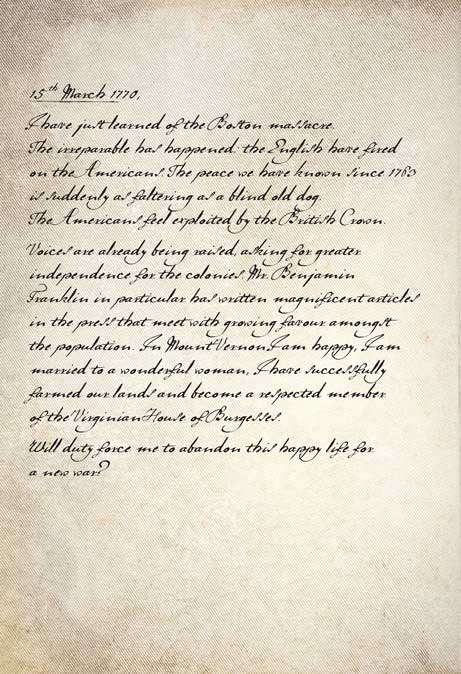 15th March 1770,
I have just learned of the Boston massacre.
The irreparable has happened: the English have fired
on the Americans. The peace we have known since 1763
is suddenly as faltering as a blind old dog.
The Americans feel exploited by the British Crown.
Voices are already being raised, asking for greater
independence for the colonies. Mr. Benjamin
Franklin in particular has written magnificent articles
in the press that meet with growing favour amongst
the population. In Mount Vernon I am happy, I am
married to a wonderful woman, I have successfully
farmed our lands and become a respected member
of the Virginian House of Burgesses.
Will duty force me to abandon this happy life for
a new war?